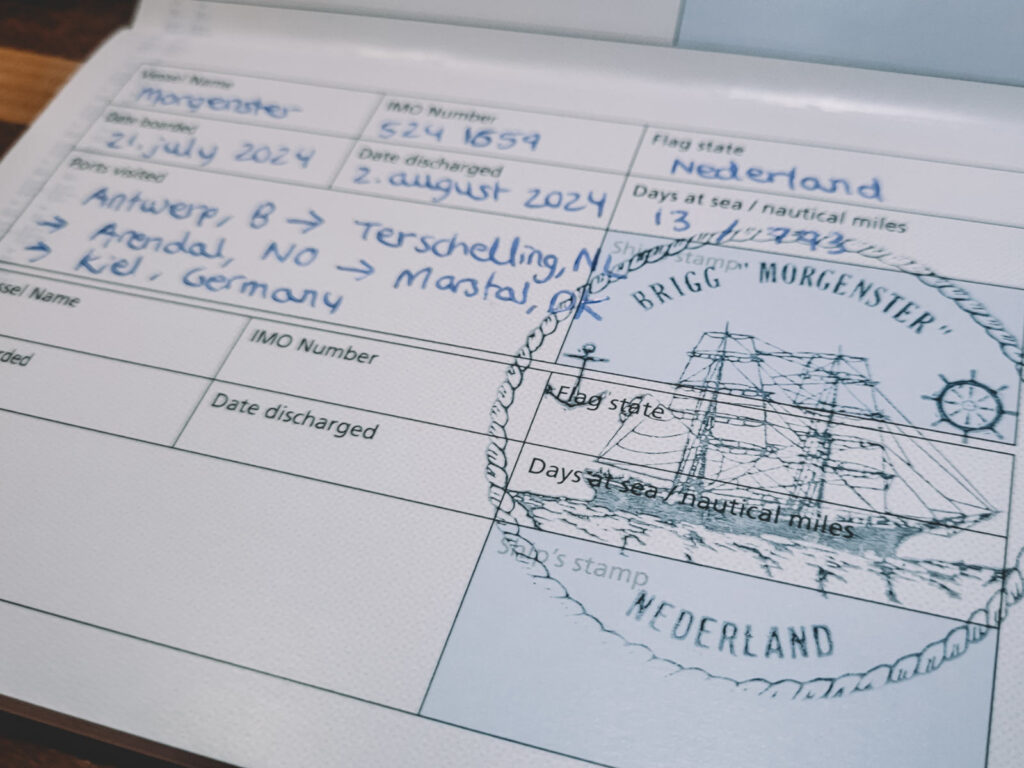 Vessel Name
Morgenster
IMO Number
524 1659
Flag state
Nederland
Date boarded
21. july 2024
Date discharged
2. august 2024
Days at sea / nautical miles
13 / 793
Ports visited
Antwerp, B → Terschelling, NL
→ Arendal, NO → Marstal, DK
→ Kiel, Germany
Ship's stamp
BRIGG "MORGENSTER"
NEDERLAND
ssel Name
IMO Number
Flag state
rded
Date discharged
Days at sea / nautical miles
Ship's stamp